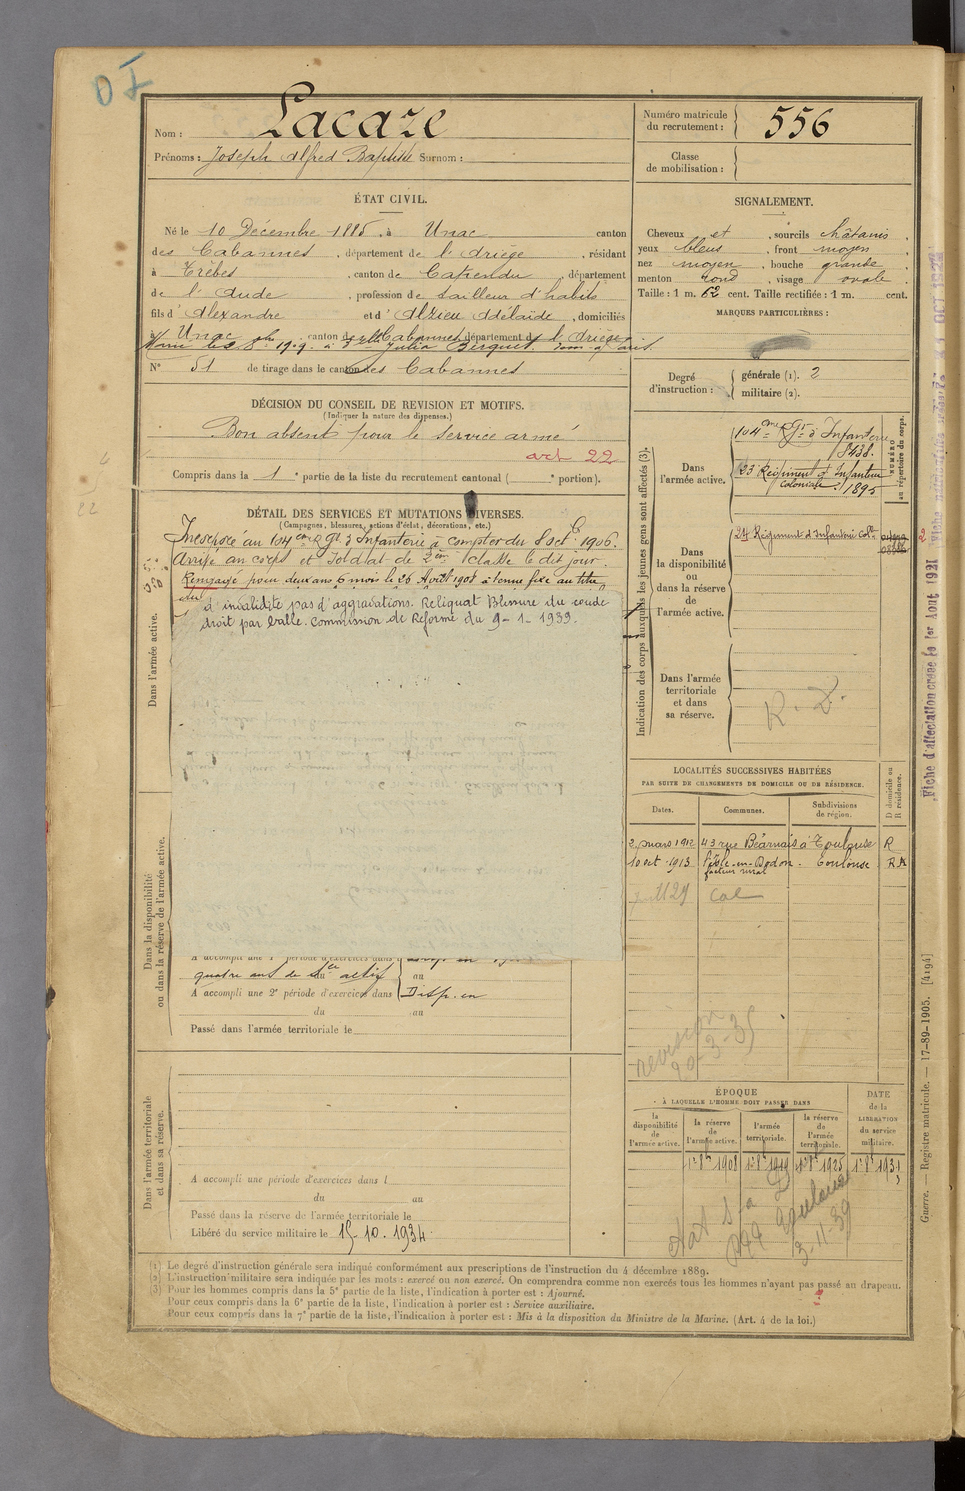 Nom : Lacaze
Prénoms : Joseph Alfred Baptiste Surnom :
Numéro matricule du recrutement : 556
Classe de mobilisation :
ÉTAT CIVIL.
Né le 10 Décembre 1885, à Unac canton
des Cabannes, département de l'Ariège, résidant
à Trèbes, canton de Capendu, département
de l'Aude, profession de tailleur d'habits
fils d'Alexandre et d'Alzieu Adélaïde, domiciliés
à Unac canton des Cabannes département de l'Ariège
Marié le 1909 à Julia
N° 51 de tirage dans le canton des Cabannes
SIGNALEMENT.
Cheveux et , sourcils châtains,
yeux bleus, front moyen,
nez moyen, bouche grande,
menton rond, visage ovale.
Taille : 1 m. 62 cent. Taille rectifiée : 1 m. cent.
MARQUES PARTICULIÈRES :
Degré d'instruction : générale (1). 2
militaire (2).
DÉCISION DU CONSEIL DE REVISION ET MOTIFS.
(Indiquer la nature des dispenses.)
Bon absent pour le service armé
art 22
Compris dans la 1e partie de la liste du recrutement cantonal ( e portion).
DÉTAIL DES SERVICES ET MUTATIONS DIVERSES.
(Campagnes, blessures, actions d'éclat, décorations, etc.)
Incorporé au 104eme Rgt d'Infanterie à compter du 8 oct 1906.
Arrivé au corps et soldat de 2eme classe le dit jour.
Rengagé pour deux ans 6 mois le 26 Avril 1908 à terme fixe au titre
du
d'invalidité pas d'aggravations. Reliquat Blessure du coude
droit par balle. Commission de Réforme du 9-1-1939.
Dans l'armée active.
Dans la disponibilité ou dans la réserve de l'armée active.
A accompli une 1e période d'exercices dans
quatre ans de sce actif au
A accompli une 2e période d'exercices dans Disp. en
du au
Passé dans l'armée territoriale le
Dans l'armée territoriale et dans sa réserve.
A accompli une période d'exercices dans l
du au
Passé dans la réserve de l'armée territoriale le
Libéré du service militaire le 15-10-1934
Indication des corps auxquels les jeunes gens sont affectés (3).
NUMÉRO au répertoire du corps.
Dans l'armée active.
104eme Rgt d'Infanterie
8438.
23 Régiment d'Infanterie coloniale 1895
Dans la disponibilité ou dans la réserve de l'armée active.
24 Régiment d'Infanterie colle
Dans l'armée territoriale et dans sa réserve.
R. D.
LOCALITÉS SUCCESSIVES HABITÉES
PAR SUITE DE CHANGEMENTS DE DOMICILE OU DE RÉSIDENCE.
Dates. Communes. Subdivisions de région. D domicile ou R résidence.
2 mars 1912 43 rue Béarnais à Toulouse R
10 oct 1913 l'Isle-en-Dodon - Toulouse R
facteur rural
revision
20-3-35
ÉPOQUE
À LAQUELLE L'HOMME DOIT PASSER DANS
DATE de la LIBÉRATION du service militaire.
la disponibilité de l'armée active.
la réserve de l'armée active.
l'armée territoriale.
la réserve de l'armée territoriale.
1er 8bre 1908 1er 8bre 1919 1er 8bre 1925 1er 8bre 1931
3-11-39
(1) Le degré d'instruction générale sera indiqué conformément aux prescriptions de l'instruction du 4 décembre 1889.
(2) L'instruction militaire sera indiquée par les mots : exercé ou non exercé. On comprendra comme non exercés tous les hommes n'ayant pas passé au drapeau.
(3) Pour les hommes compris dans la 5e partie de la liste, l'indication à porter est : Ajourné.
Pour ceux compris dans la 6e partie de la liste, l'indication à porter est : Service auxiliaire.
Pour ceux compris dans la 7e partie de la liste, l'indication à porter est : Mis à la disposition du Ministre de la Marine. (Art. 4 de la loi.)
Guerre. — Registre matricule. — 17-89-1905. [4194]
Fiche d'affectation créée le 1er Août 1921